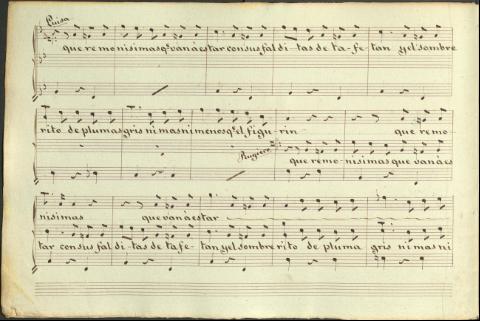 Luisa
que re mo nisimas q.e van á es tar con sus fal di - tas de ta - fe - tan y el sombre
rito de plumas gris ni mas ni menos q.e el figu rin que re mo -
Rugiero
que re mo - nisimas que van á es
nisimas que van á es tar
tar con sus fal di - tas de ta fe - tan y el sombre rito de pluma gris ni mas ni